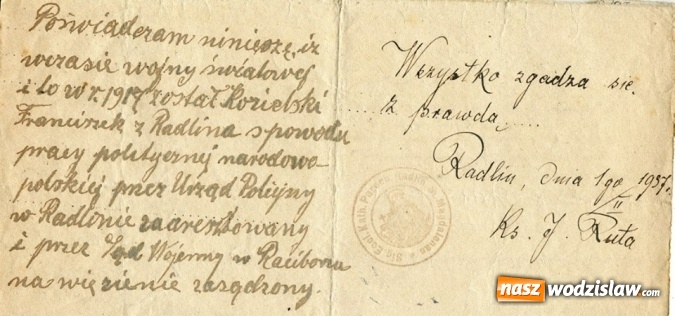 Poświadczam niniejszę, iz
wczasie wojny światowej
i to w r. 1917 został Kozielski
Franciszek z Radlina spowodu
pracy politycznej narodowo-
polskiej przez Urząd Policyjny
w Radlinie zaarestowany
i przez Sąd Wojenny w Raciborzu
na więzienie zasądzony.
Wszystko zgadza się
z prawdą
Radlin, dnia 1go II 1937r.
Ks. J. Ruta
nasz wodzislaw.com